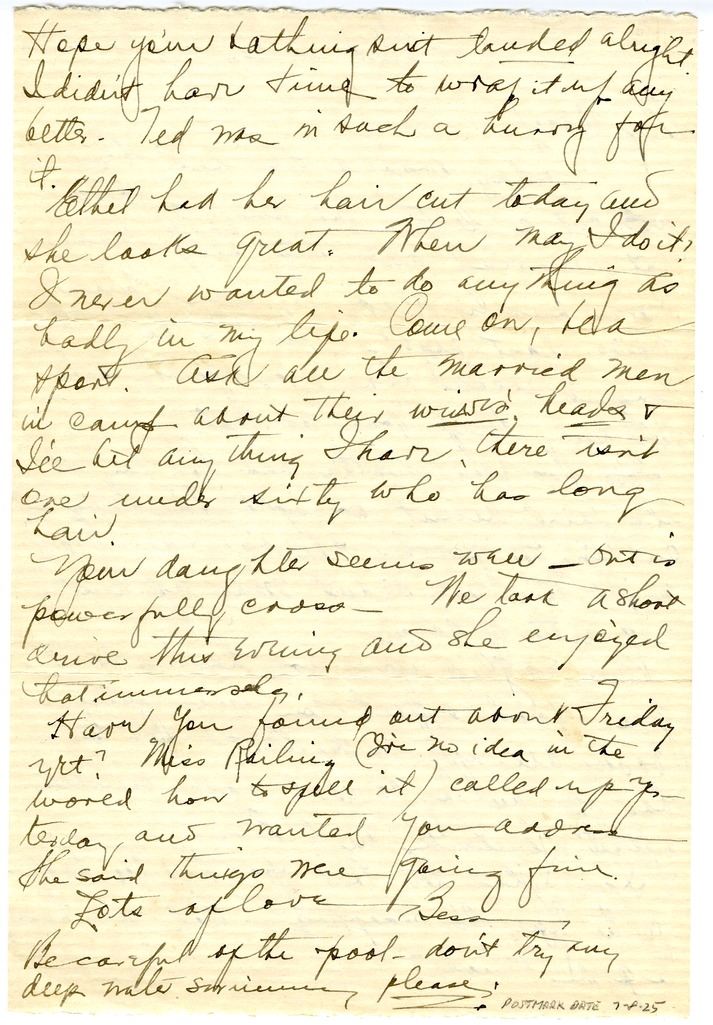 Hope your bathing suit landed alright.
I didn't have time to wrap it up any
better. Ted was in such a hurry for
it.
Ethel had her hair cut today and
she looks great. When may I do it?
I never wanted to do anything as
badly in my life. Come on, be a
sport. Ask all the married men
in camp about their wives' heads &
I'll bet anything I have, there isn't
one under sixty who has long
hair.
Your daughter seems well - but is
powerfully cross - We took a short
drive this evening and she enjoyed
that immensely.
Have you found out about Friday
yet? Miss Railing (I've no idea in the
world how to spell it) called up yes-
terday and wanted your address
She said things were going fine.
Lots of love Bess
Be careful of the pool - don't try any
deep water swimming please.
POSTMARK DATE 7-8-25